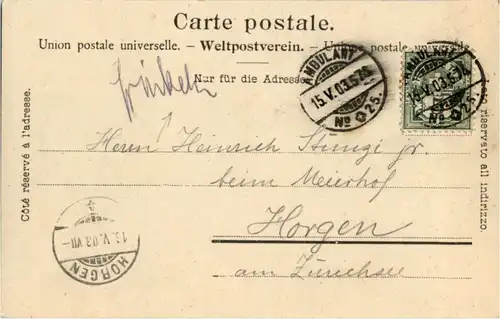 Carte postale.
Union postale universelle. – Weltpostverein. – Unione postale universale.
Nur für die Adresse.
Côté réservé à l'adresse.
lato riservato all indirizzo.
AMBULANT
15.V.03.
No 25.
AMBULANT
15.V.03.
No 25.
Herrn Heinrich Stünzi jr.
beim Meierhof
Horgen
am Zürichsee
15.V.03.VII-
HORGEN